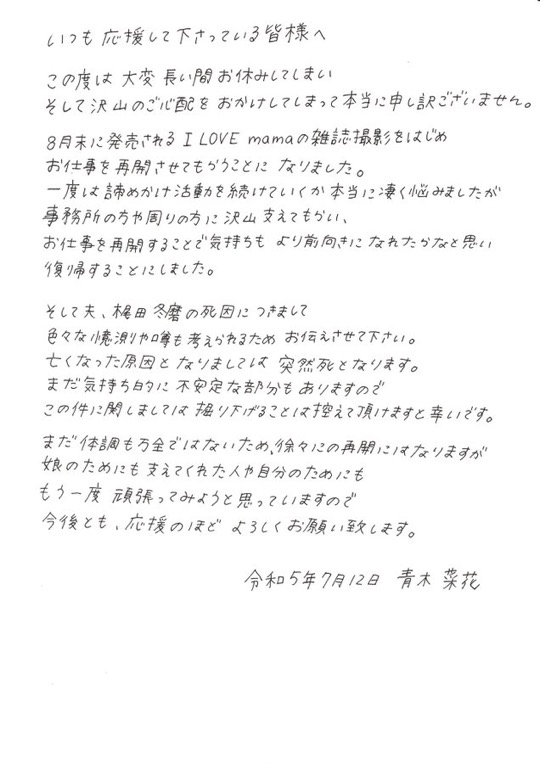 いつも応援して下さっている皆様へ
この度は 大変 長い間 お休みしてしまい
そして沢山のご心配を おかけしてしまって本当に申し訳ございません。
8月末に発売される I LOVE mamaの雑誌撮影をはじめ
お仕事を再開させてもらうことに なりました。
一度は諦めかけ活動を続けていくか本当に凄く悩みましたが
事務所の方や周りの方に沢山支えてもらい、
お仕事を再開することで気持ちも より前向きに なれたかなと思い
復帰することにしました。
そして夫、梶田 冬磨の死因につきまして
色々な憶測や噂も考えられるため お伝えさせて下さい。
亡くなった原因と なりましては 突然死となります。
まだ気持ち的に 不安定な部分もありますので
この件に関しましては 掘り下げることは控えて頂けますと幸いです。
まだ体調も万全ではないため、徐々にの再開にはなりますが
娘のためにも支えてくれた人や自分のためにも
もう一度 頑張ってみようと思っていますので
今後とも、応援のほど よろしくお願い致します。
令和5年7月12日 青木 菜花